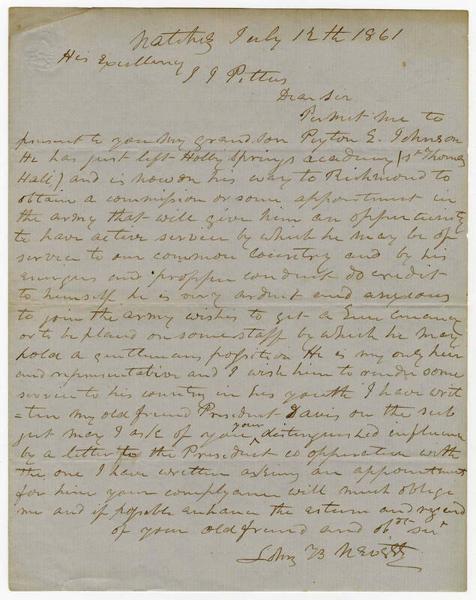 Natchez July 12th 1861
His Excellency
J J Pettus
Dear Sir
Permit me to
present to you my grandson Peyton E. Johnson
He has just left Holly Springs academy (St Thomas
Hall) and is now on his way to Richmond to
obtain a commission or some appointment in
the army that will give him an oppertunity
to have active service by which he may be of
service to our common Country and by his
energies and propper conduct do credit
to himself he is very ardent and anxious
to join the army wishes to get a
or to be placed on some staff by which he may
hold a gentlemans possition He is my only heir
and representative and I wish him to render some
service to his country in his youth I have writ
=ten my old friend President Davis on the sub
ject may I ask of you your distinguished influence
by a letter to the President co operative with
the one I have written asking an appointment
for him your complyance will much oblige
me and if possible enhance the esteem and regard
of your old friend and obt svt
John B Nevitt